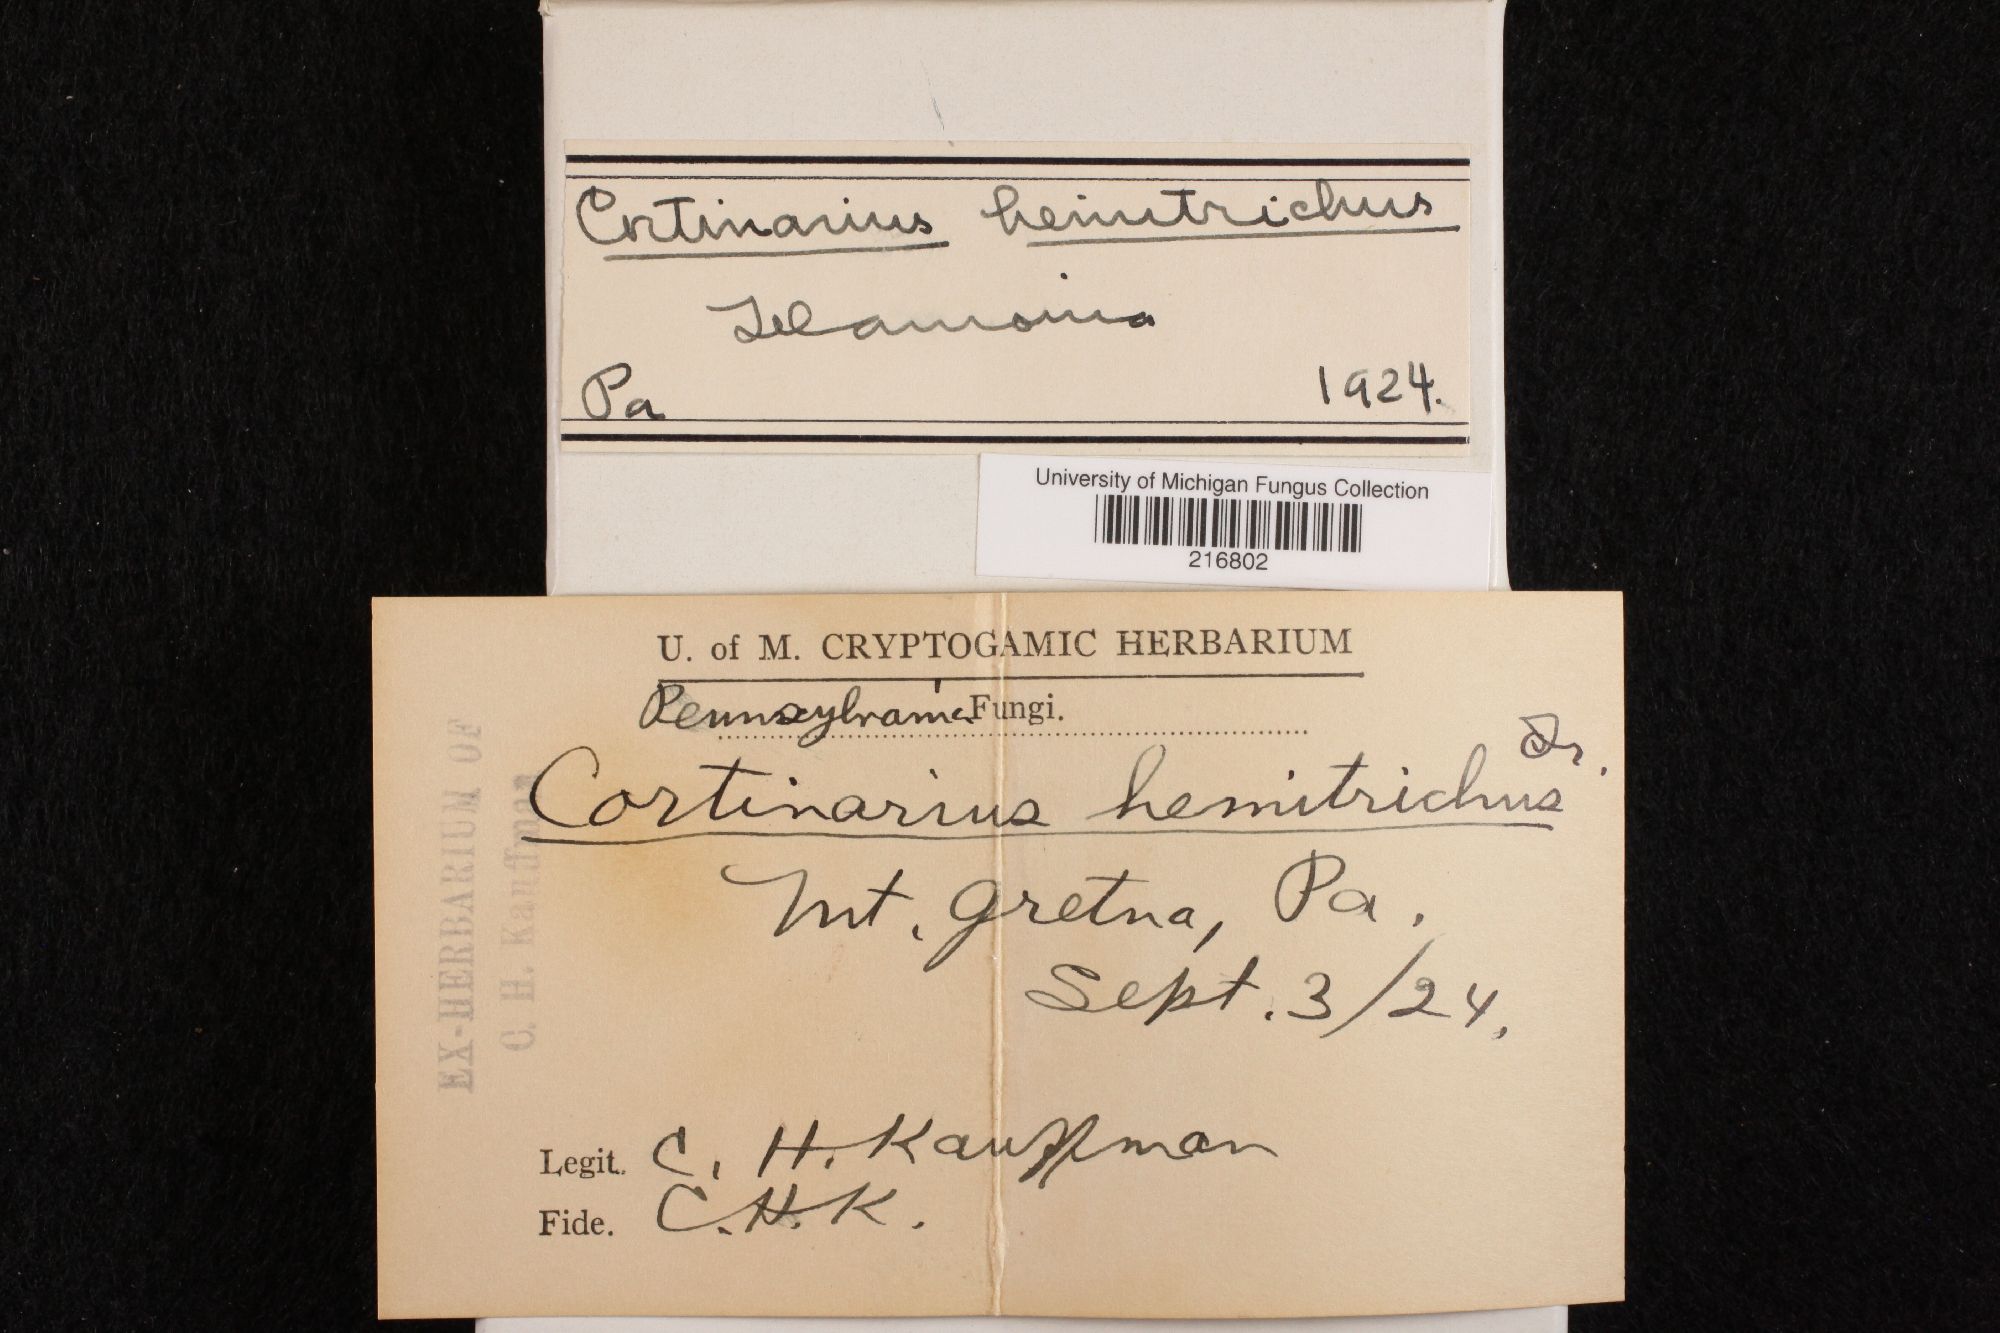 Cortinarius hemitrichus
Telamonia
Pa 1924.
University of Michigan Fungus Collection
216802
U. of M. CRYPTOGAMIC HERBARIUM
Pennsylvania Fungi.
Fr.
Cortinarius hemitrichus
Mt. Gretna, Pa.
Sept. 3/24.
Legit. C. H. Kauffman
Fide. C.H.K.
EX-HERBARIUM OF
C. H. Kauffman